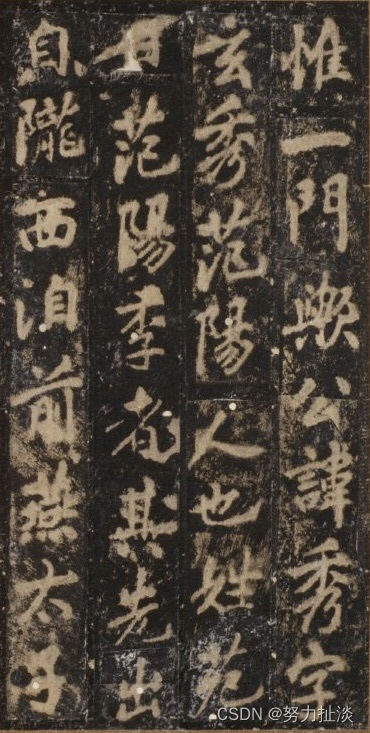 惟一門歟公諱秀字
玄秀范陽人也姓
范陽季者其先出
自隴西洎前燕太子
CSDN @努力扯淡